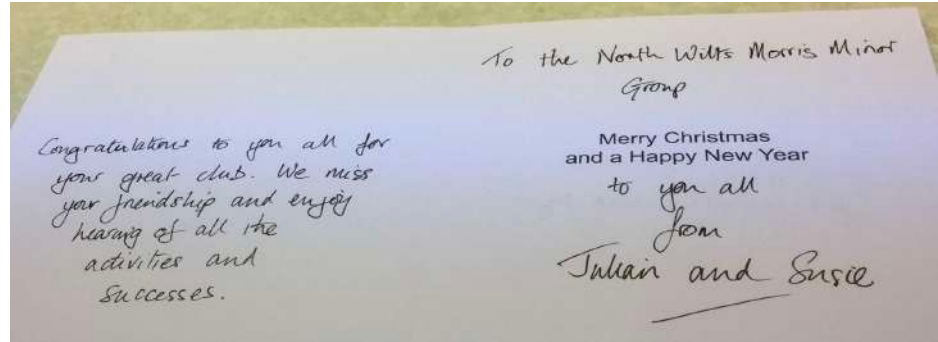 Congratulations to you all for
your great club. We miss
your friendship and enjoy
hearing of all the
activities and
successes.
To the North Wilts Morris Minor
Group
Merry Christmas
and a Happy New Year
to you all
from
Julian and Susie